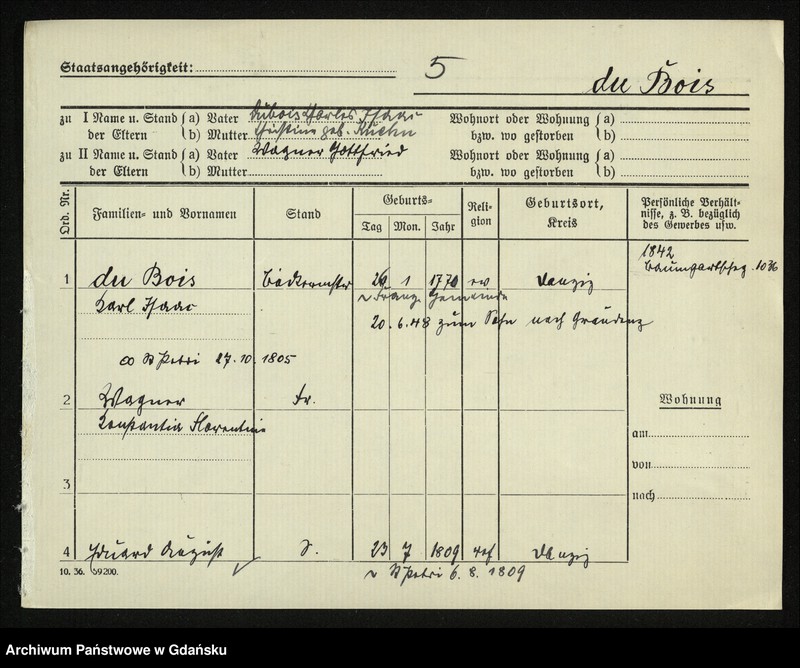 Staatsangehörigkeit:
5
du Bois
zu I Name u. Stand a) Vater Dubois Charles Isaac Wohnort oder Wohnung a)
der Eltern b) Mutter Christine geb. Kuehn bzw. wo gestorben b)
zu II Name u. Stand a) Vater Wagner Gottfried Wohnort oder Wohnung a)
der Eltern b) Mutter bzw. wo gestorben b)
Ord. Nr. Familien- und Vornamen Stand Geburts- Tag Mon. Jahr Reli-gion Geburtsort, Kreis Persönliche Verhält-nisse, z. B. bezüglich des Gewerbes usw.
1842
Baumgartscheg. 1036
1 du Bois Bäckermstr 1 1770 Danzig
Karl Isaac
~ Franz. Gemeinde
20.6.48 zum Sohn nach Graudenz
∞ St Petri 27.10.1805
2 Wagner Fr.
Konstantia Florentine
Wohnung
am
von
nach
3
4 Eduard August S. 23 7 1809 ref Danzig
~ St Petri 6.8.1809
10. 36. 59200.
Archiwum Państwowe w Gdańsku